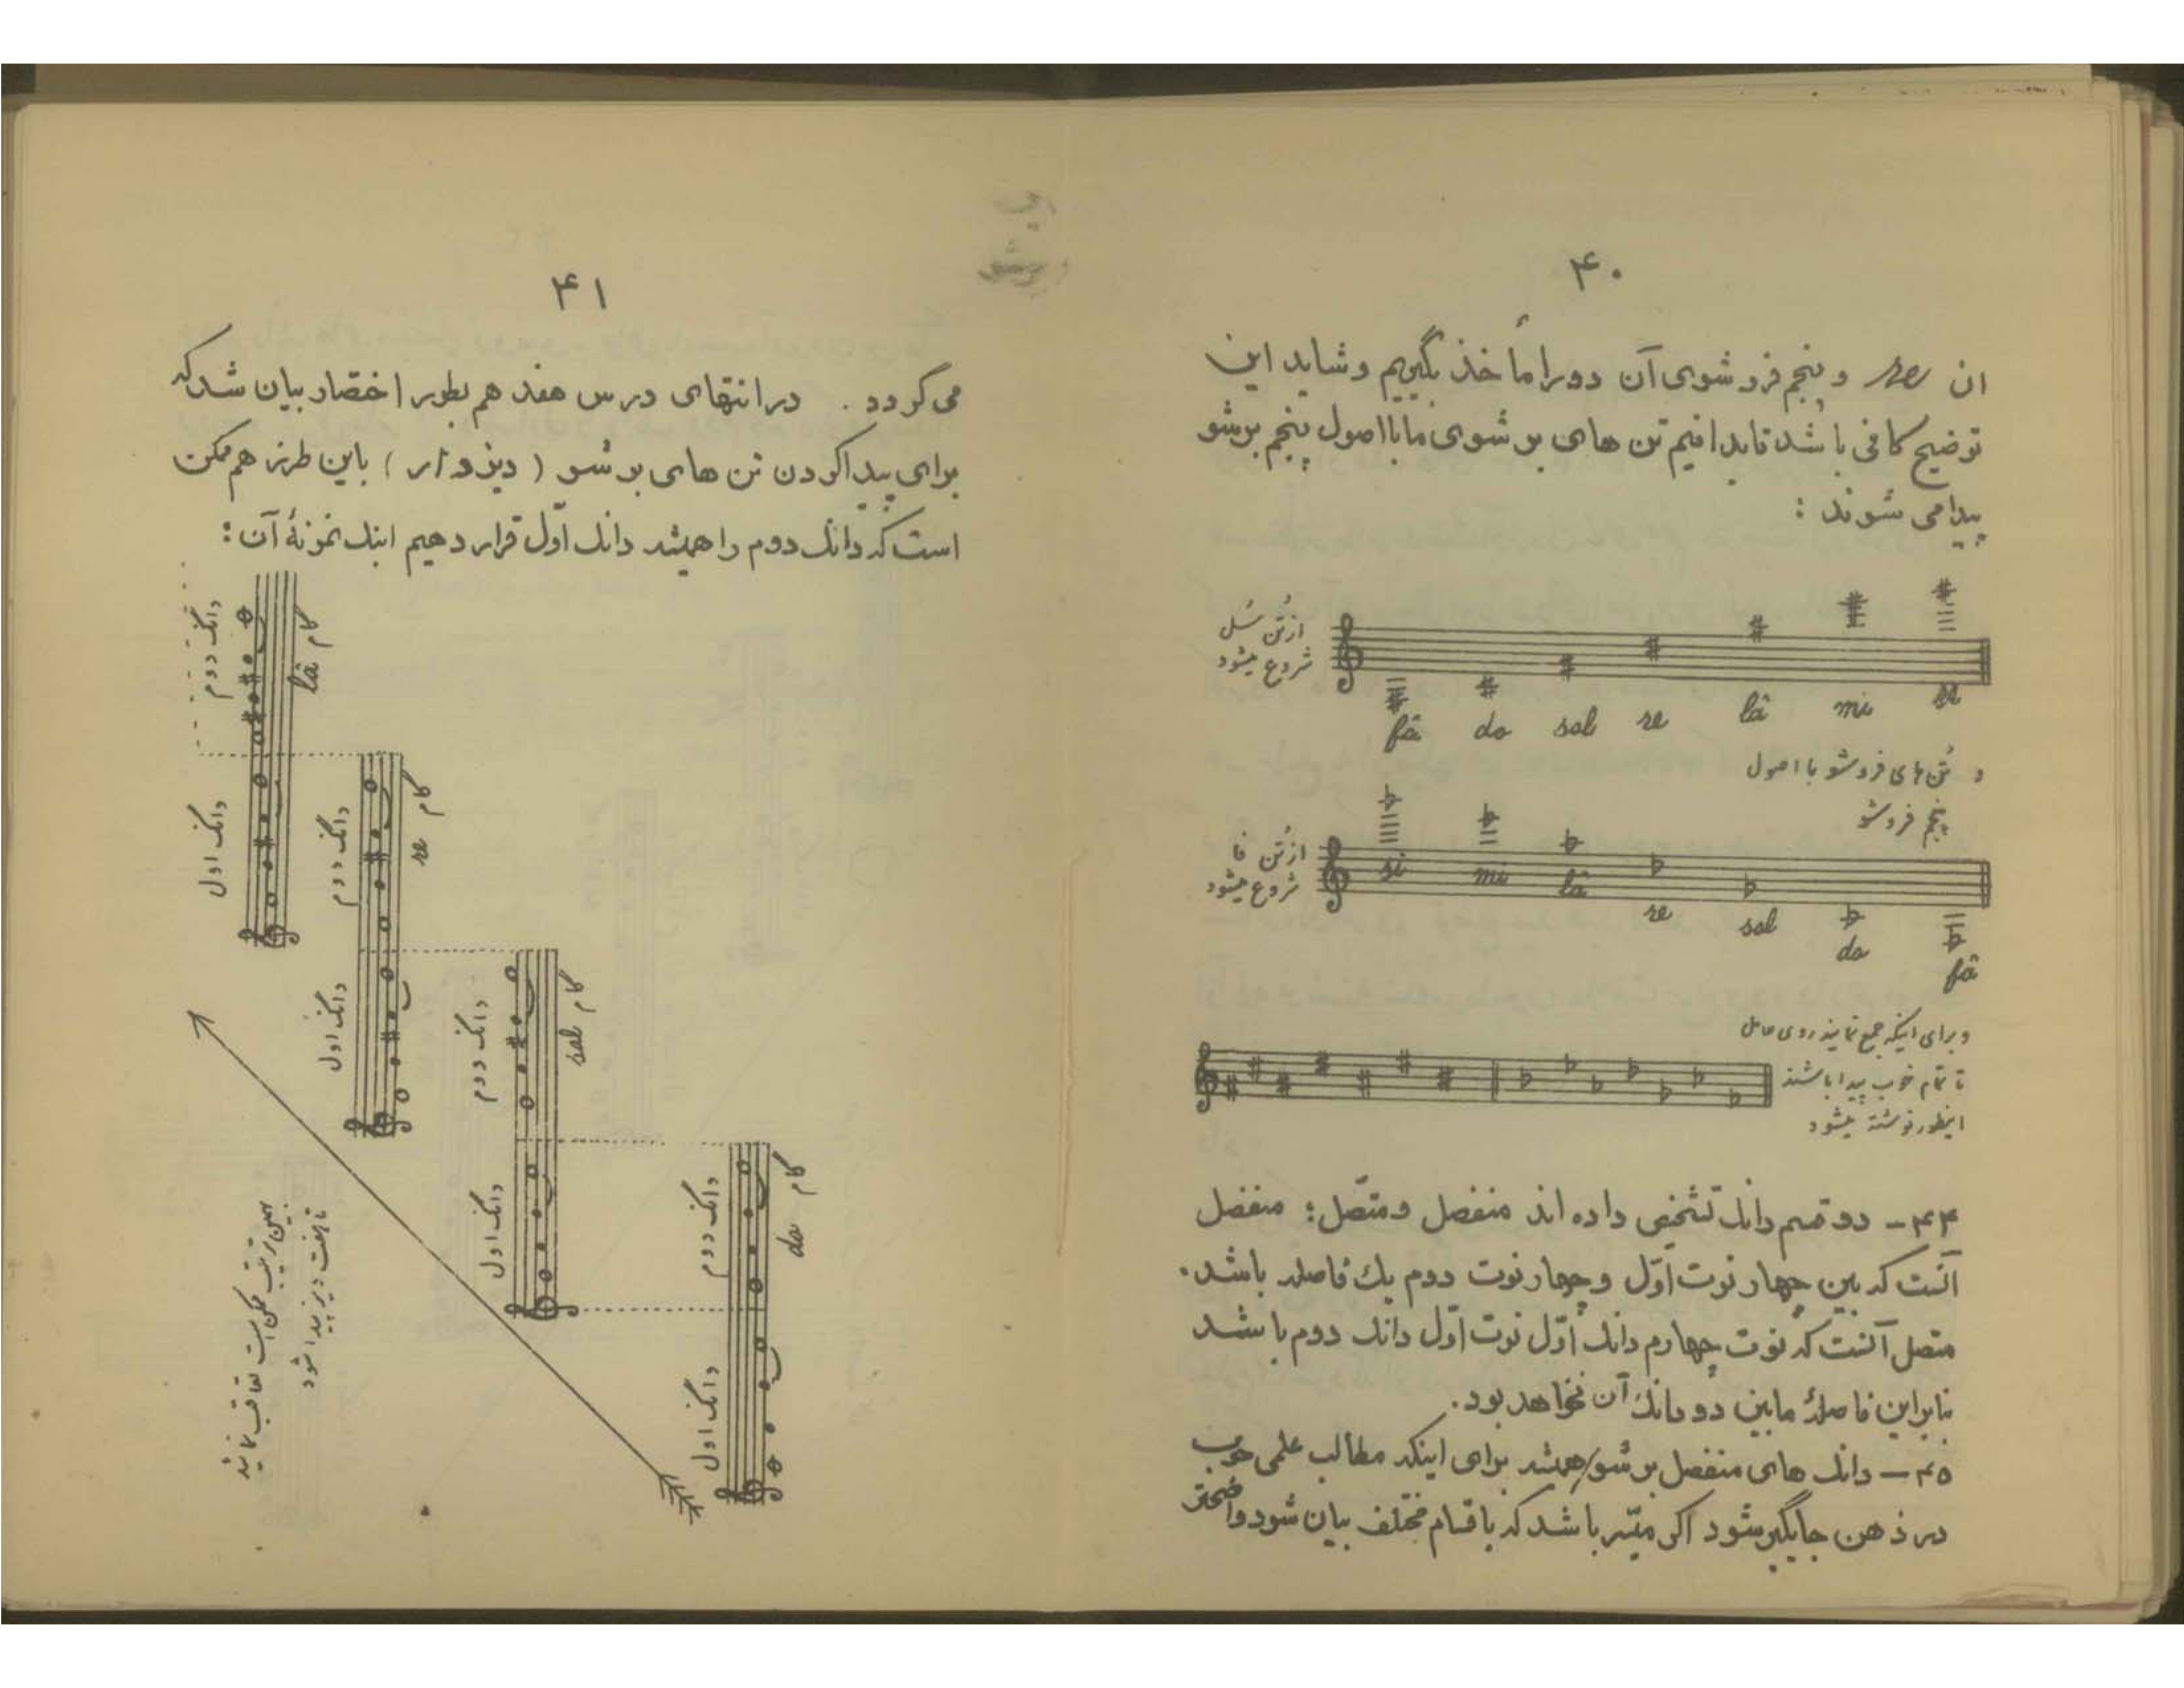 ۴۰
ان re و پنجم فرو شوی آن دو را مأخذ بگیریم و شاید این
توضیح کافی باشد تا بدانیم تن های بر شوی ما با اصول پنجم برشو
پیدا می شوند :
از تُن سُل
شروع میشود
fâ do sol re lâ mi si
و تُن های فروشو با اصول
پنجم فروشو
از تُن فا
شروع میشود
si mi lâ re sol do fâ
و برای اینکه جمع نمایند روی حامل
تا تمام خوب پیدا باشند
اینطور نوشته میشود
۴۴ – دو قسم دانك تشخیص داده اند منفصل و متصّل : منفصل
آنست که بین چهار نوت اوّل و چهار نوت دوم یك فاصله باشد .
متصل آنست که نوت چهارم دانك اوّل نوت اوّل دانك دوم باشد
بنابراین فاصلهٔ مابین دو دانك آن نخواهد بود .
۴۵ – دانك های منفصل بر شو همیشه برای اینکه مطالب علمی خوب
در ذهن جایگیر شود اگر میّسر باشد که باقسام مختلف بیان شود واضحتر
۴۱
می گردد . در انتهای درس هفد هم بطور اختصار بیان شد که
برای پیدا کردن تن های بر شو ( دیز دار ) باین طرز هم ممکن
است که دانك دوم را همیشه دانك اوّل قرار دهیم اینك نمونهٔ آن :
دانگ اول دانگ دوم
گام lâ
دانگ اول دانگ دوم
گام re
دانگ اول دانگ دوم
گام sol
دانگ اول دانگ دوم
گام do
بهمین ترتیب ممکن است تعاقب نمائید
تا هفت دیز پیدا شود